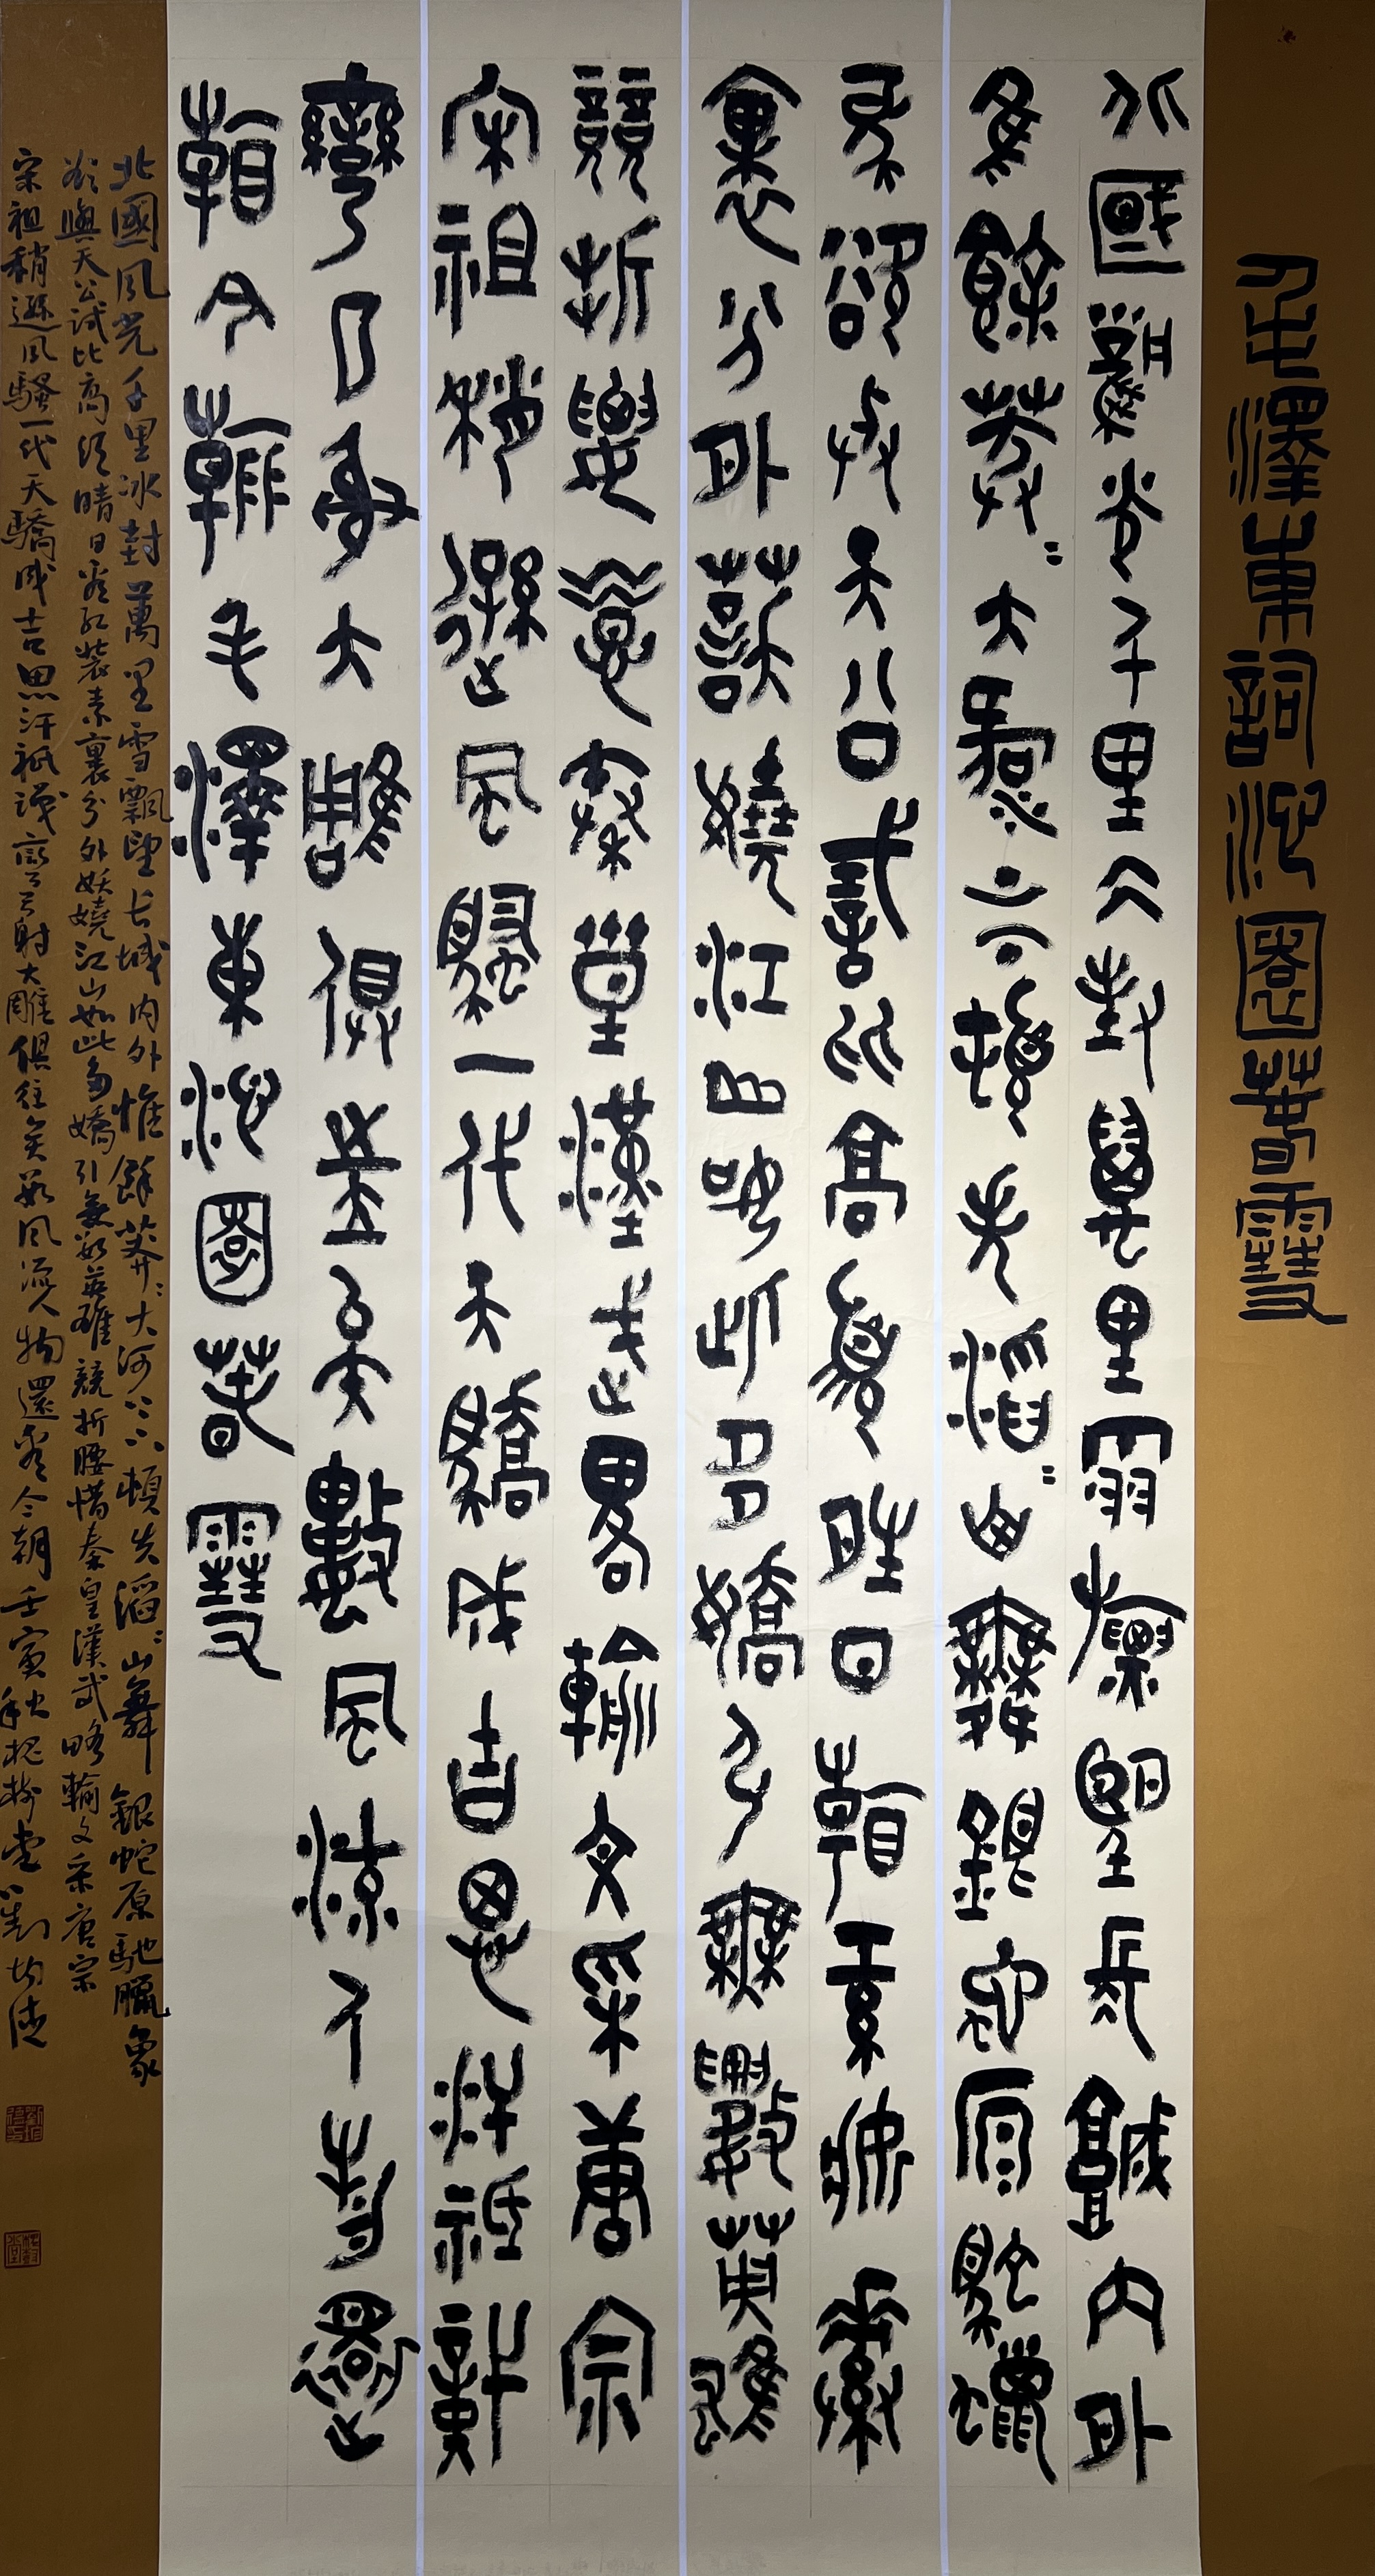 毛澤東詞沁園春雪
北國風光千里冰封萬里雪飄望長城內外
惟餘莽〻大河上下頓失滔〻山舞銀蛇原馳蠟
象欲與天公試比高須晴日看紅妝素
裹分外妖嬈江山如此多嬌引無數英雄
競折腰惜秦皇漢武略輸文采唐宗
宋祖稍遜風騷一代天驕成吉思汗祗識
彎弓射大雕俱往矣數風流人物還
看今朝毛澤東沁園春雪
北國風光千里冰封萬里雪飄望長城內外惟餘莽〻大河上下頓失滔〻山舞銀蛇原馳臘象
欲與天公試比高須晴日看紅裝素裹分外妖嬈江山如此多嬌引無數英雄競折腰惜秦皇漢武略輸文采唐宗
宋祖稍遜風騷一代天驕成吉思汗祇識彎弓射大雕俱往矣數風流人物還看今朝壬寅秋槐樹堂劉均德